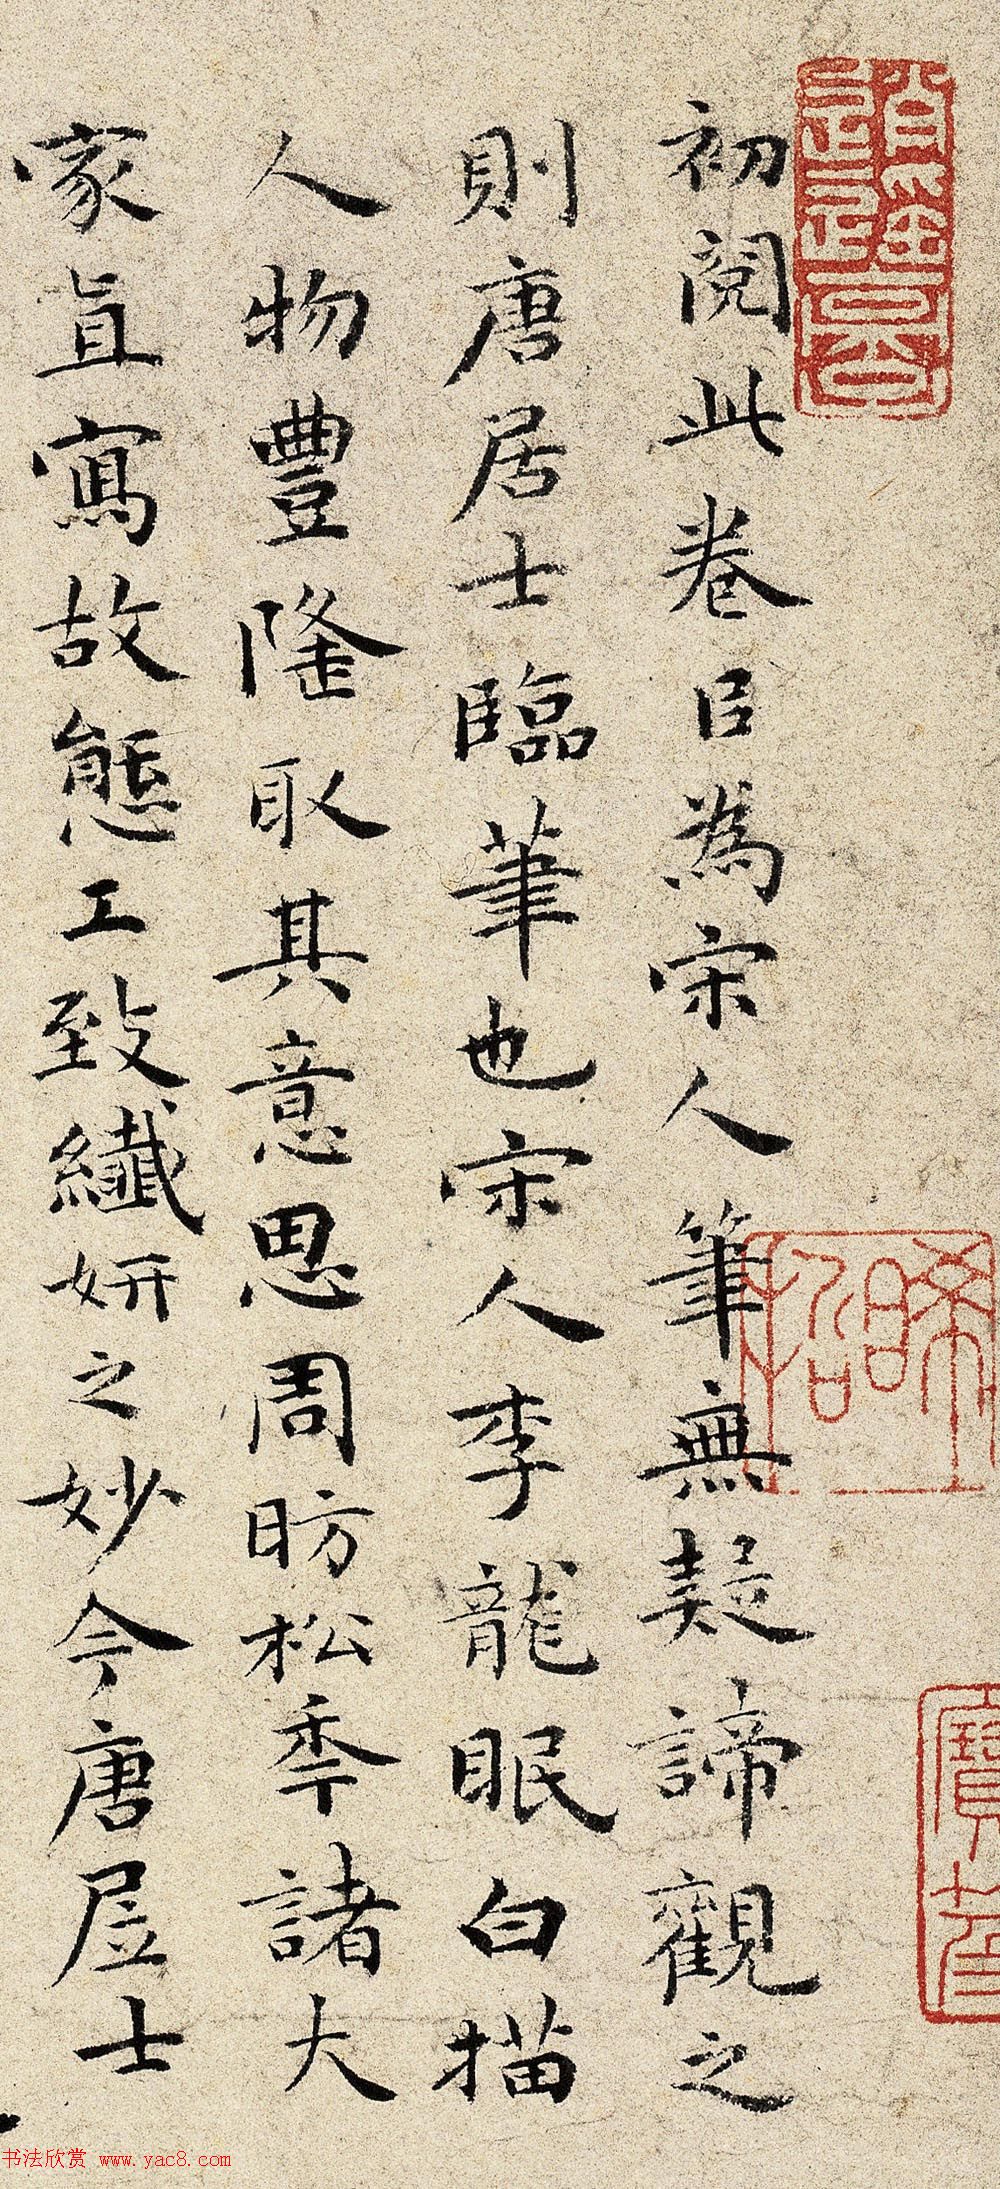 初閱此卷㠯為宋人筆無疑諦觀之
則唐居士臨筆也宋人李龍眠白描
人物豐隆取其意思周昉松年諸大
家真寫故態工致纖妍之妙今唐居士
书法欣赏 www.yac8.com